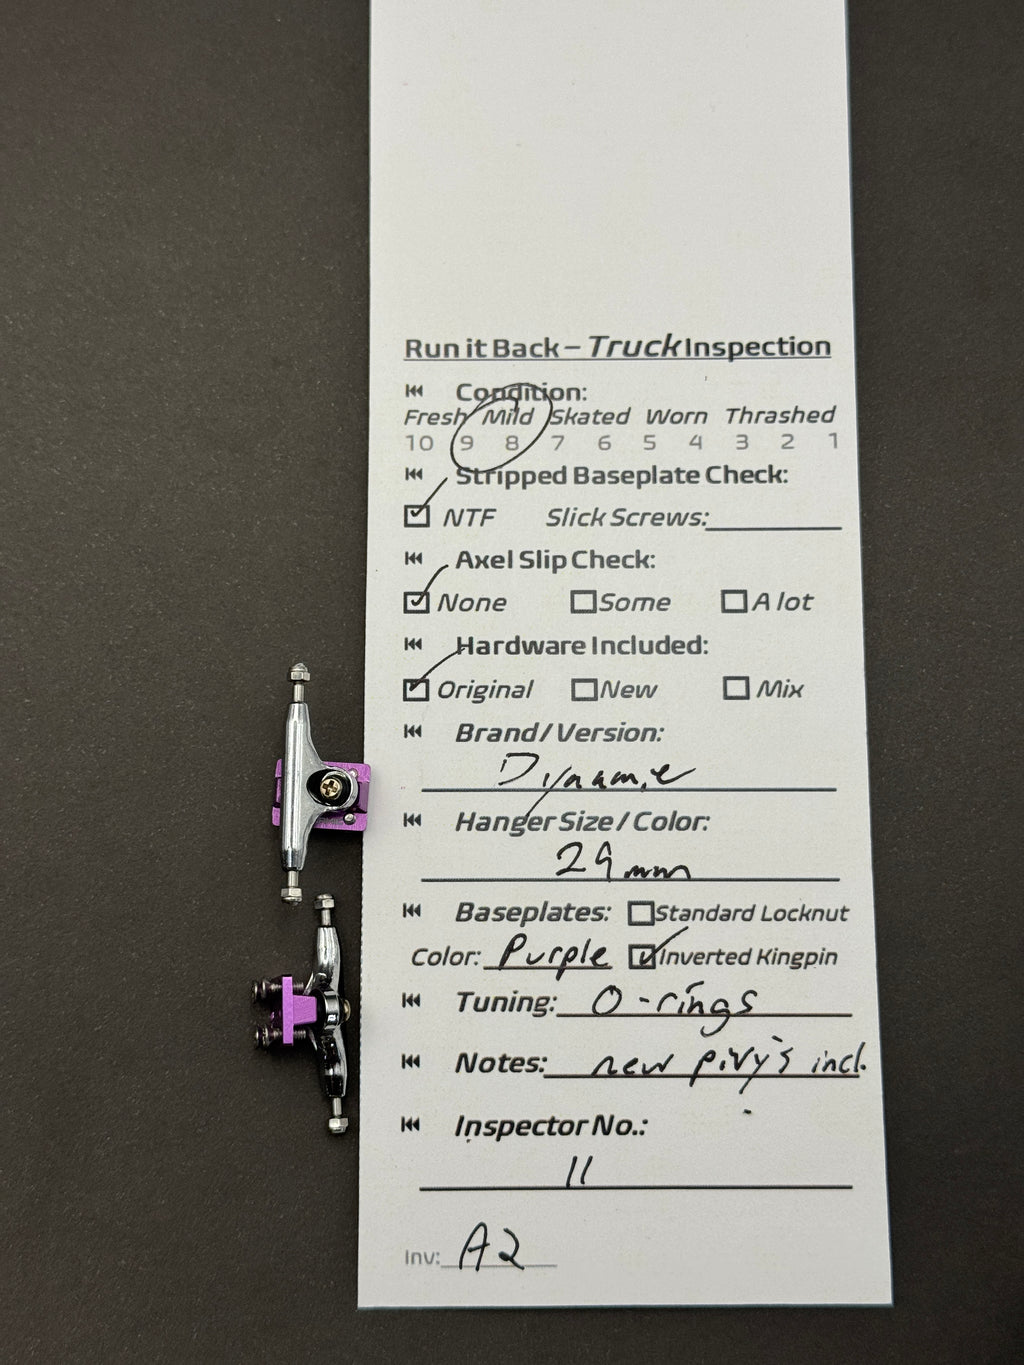 Run it Back – Truck Inspection
Condition:
Fresh Mild Skated Worn Thrashed
10 9 8 7 6 5 4 3 2 1
Stripped Baseplate Check:
NTF Slick Screws:
Axel Slip Check:
None Some A lot
Hardware Included:
Original New Mix
Brand / Version:
Dynamic
Hanger Size / Color:
29mm
Baseplates: Standard Locknut
Color: Purple Inverted Kingpin
Tuning: O-rings
Notes: new pivy's incl.
Inspector No.:
11
Inv: A2